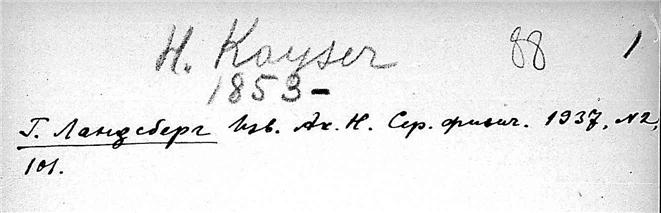 H. Kayser 88 1
1853-
Г. Ландсберг Изв. Ак. Н. Сер. физич. 1937, №2,
101.